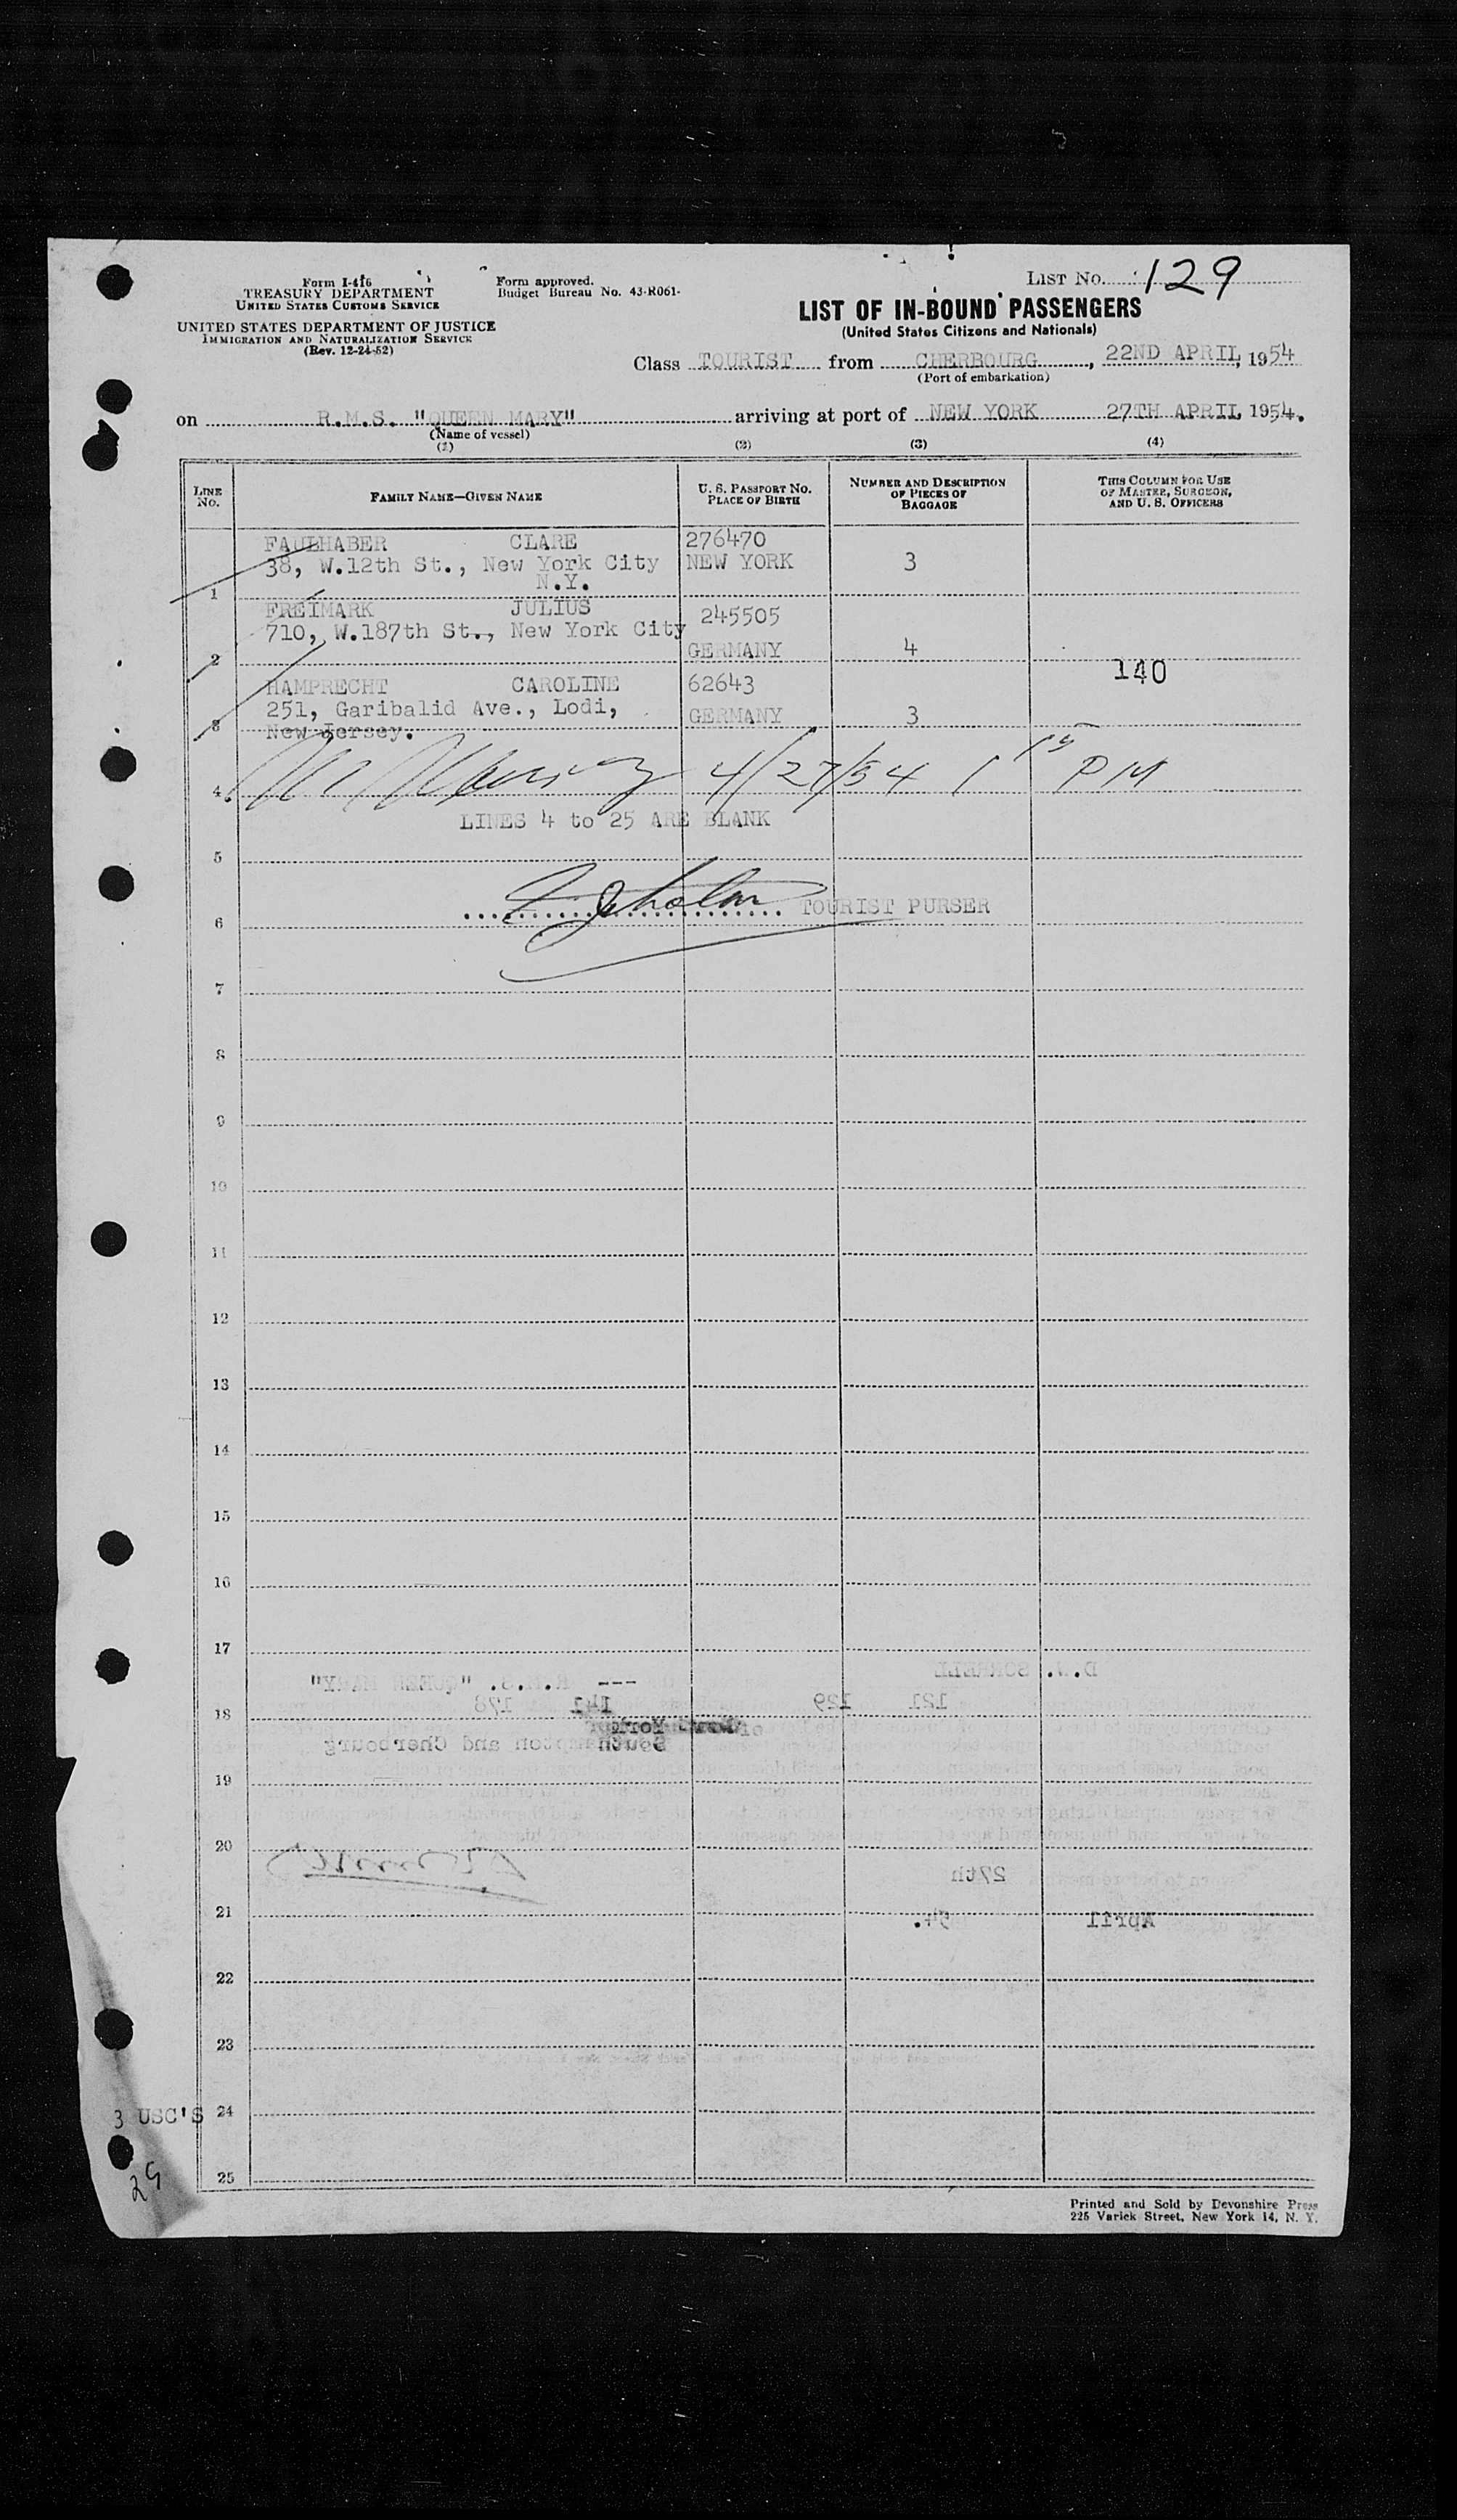 Form I-416
TREASURY DEPARTMENT
UNITED STATES CUSTOMS SERVICE
UNITED STATES DEPARTMENT OF JUSTICE
IMMIGRATION AND NATURALIZATION SERVICE
(Rev. 12-24-52)
Form approved.
Budget Bureau No. 43-R061-
LIST NO. 129
LIST OF IN-BOUND PASSENGERS
(United States Citizens and Nationals)
Class TOURIST from CHERBOURG, 22ND APRIL, 1954
(Port of embarkation)
on R.M.S. "QUEEN MARY" arriving at port of NEW YORK 27TH APRIL, 1954.
(Name of vessel)
(1) (2) (3) (4)
LINE NO. FAMILY NAME—GIVEN NAME U. S. PASSPORT NO. PLACE OF BIRTH NUMBER AND DESCRIPTION OF PIECES OF BAGGAGE THIS COLUMN FOR USE OF MASTER, SURGEON, AND U. S. OFFICERS
FAULHABER CLARE 276470
38, W.12th St., New York City NEW YORK 3
N.Y.
1
FREIMARK JULIUS 245505
710, W.187th St., New York City
GERMANY 4
2
140
HAMPRECHT CAROLINE 62643
251, Garibalid Ave., Lodi, GERMANY 3
3 New Jersey.
4 4/27/54 1 15 PM
LINES 4 to 25 ARE BLANK
5
TOURIST PURSER
6
7
8
9
10
11
12
13
14
15
16
17
D.W. SORRELL --- R.M.S. "QUEEN MARY"
121 129 141 178
18
New York
Southampton and Cherbourg
19
20
27th
21 April 54.
22
23
3 USC'S 24
29
25
Printed and Sold by Devonshire Press
225 Varick Street, New York 14, N. Y.